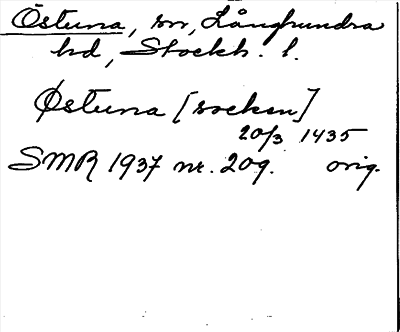 Östuna, sn, Långhundra
hd, Stockh. l.
Østuna [socken]
20/3 1435
SMR 1937 nr. 209. orig.